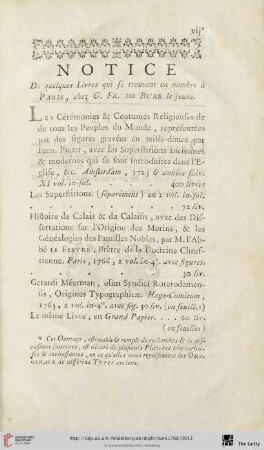 vij
NOTICE
De quelques Livres qui se trouvent en nombre à
PARIS, chez G. FR. DE BURE le jeune.
LES Cérémonies & Coutumes Religieuses de
de tous les Peuples du Monde, représentées
par des figures gravées en taille-douce par
Bern. Picart, avec les Superstitions anciennes
& modernes qui se sont introduites dans l'E-
glise, &c. Amsterdam, 1723 & années suiv.
XI vol. in-fol. . . . . 400 livres
Les Superstitions. (séparément) en 2 vol. in-fol.
. . . . . . . . 72 liv.
Histoire de Calais & du Calaisis, avec des Dis-
sertations sur l'Origine des Morins, & les
Généalogies des Familles Nobles, par M. l'Ab-
bé LE FEVRE, Prêtre de la Doctrine Chres-
tienne. Paris, 1766, 2 vol. in-4°. avec figures.
. . . . . . . . 30 liv.
Gerardi Méerman, olim Syndici Roterodamen-
sis, Origines Typographicæ. Hagæ-Comitum,
1765, 2 vol. in-4°. avec fig. 50 liv. (en feuill.)
Le même Livre, en Grand Papier. . . . 60 liv.
(en feuilles)
* Cet Ouvrage, estimable & rempli de recherches & de dis-
cussions savantes, est décoré de plusieurs Planches très-curieu-
ses & intéressantes, en ce qu'elles nous représentent les ORI-
GINAUX de différens TYPES anciens.
UNIVERSITÄTS-
BIBLIOTHEK
HEIDELBERG
http://digi.ub.uni-heidelberg.de/diglit/bure1768/0013
© Universitätsbibliothek Heidelberg
The Getty